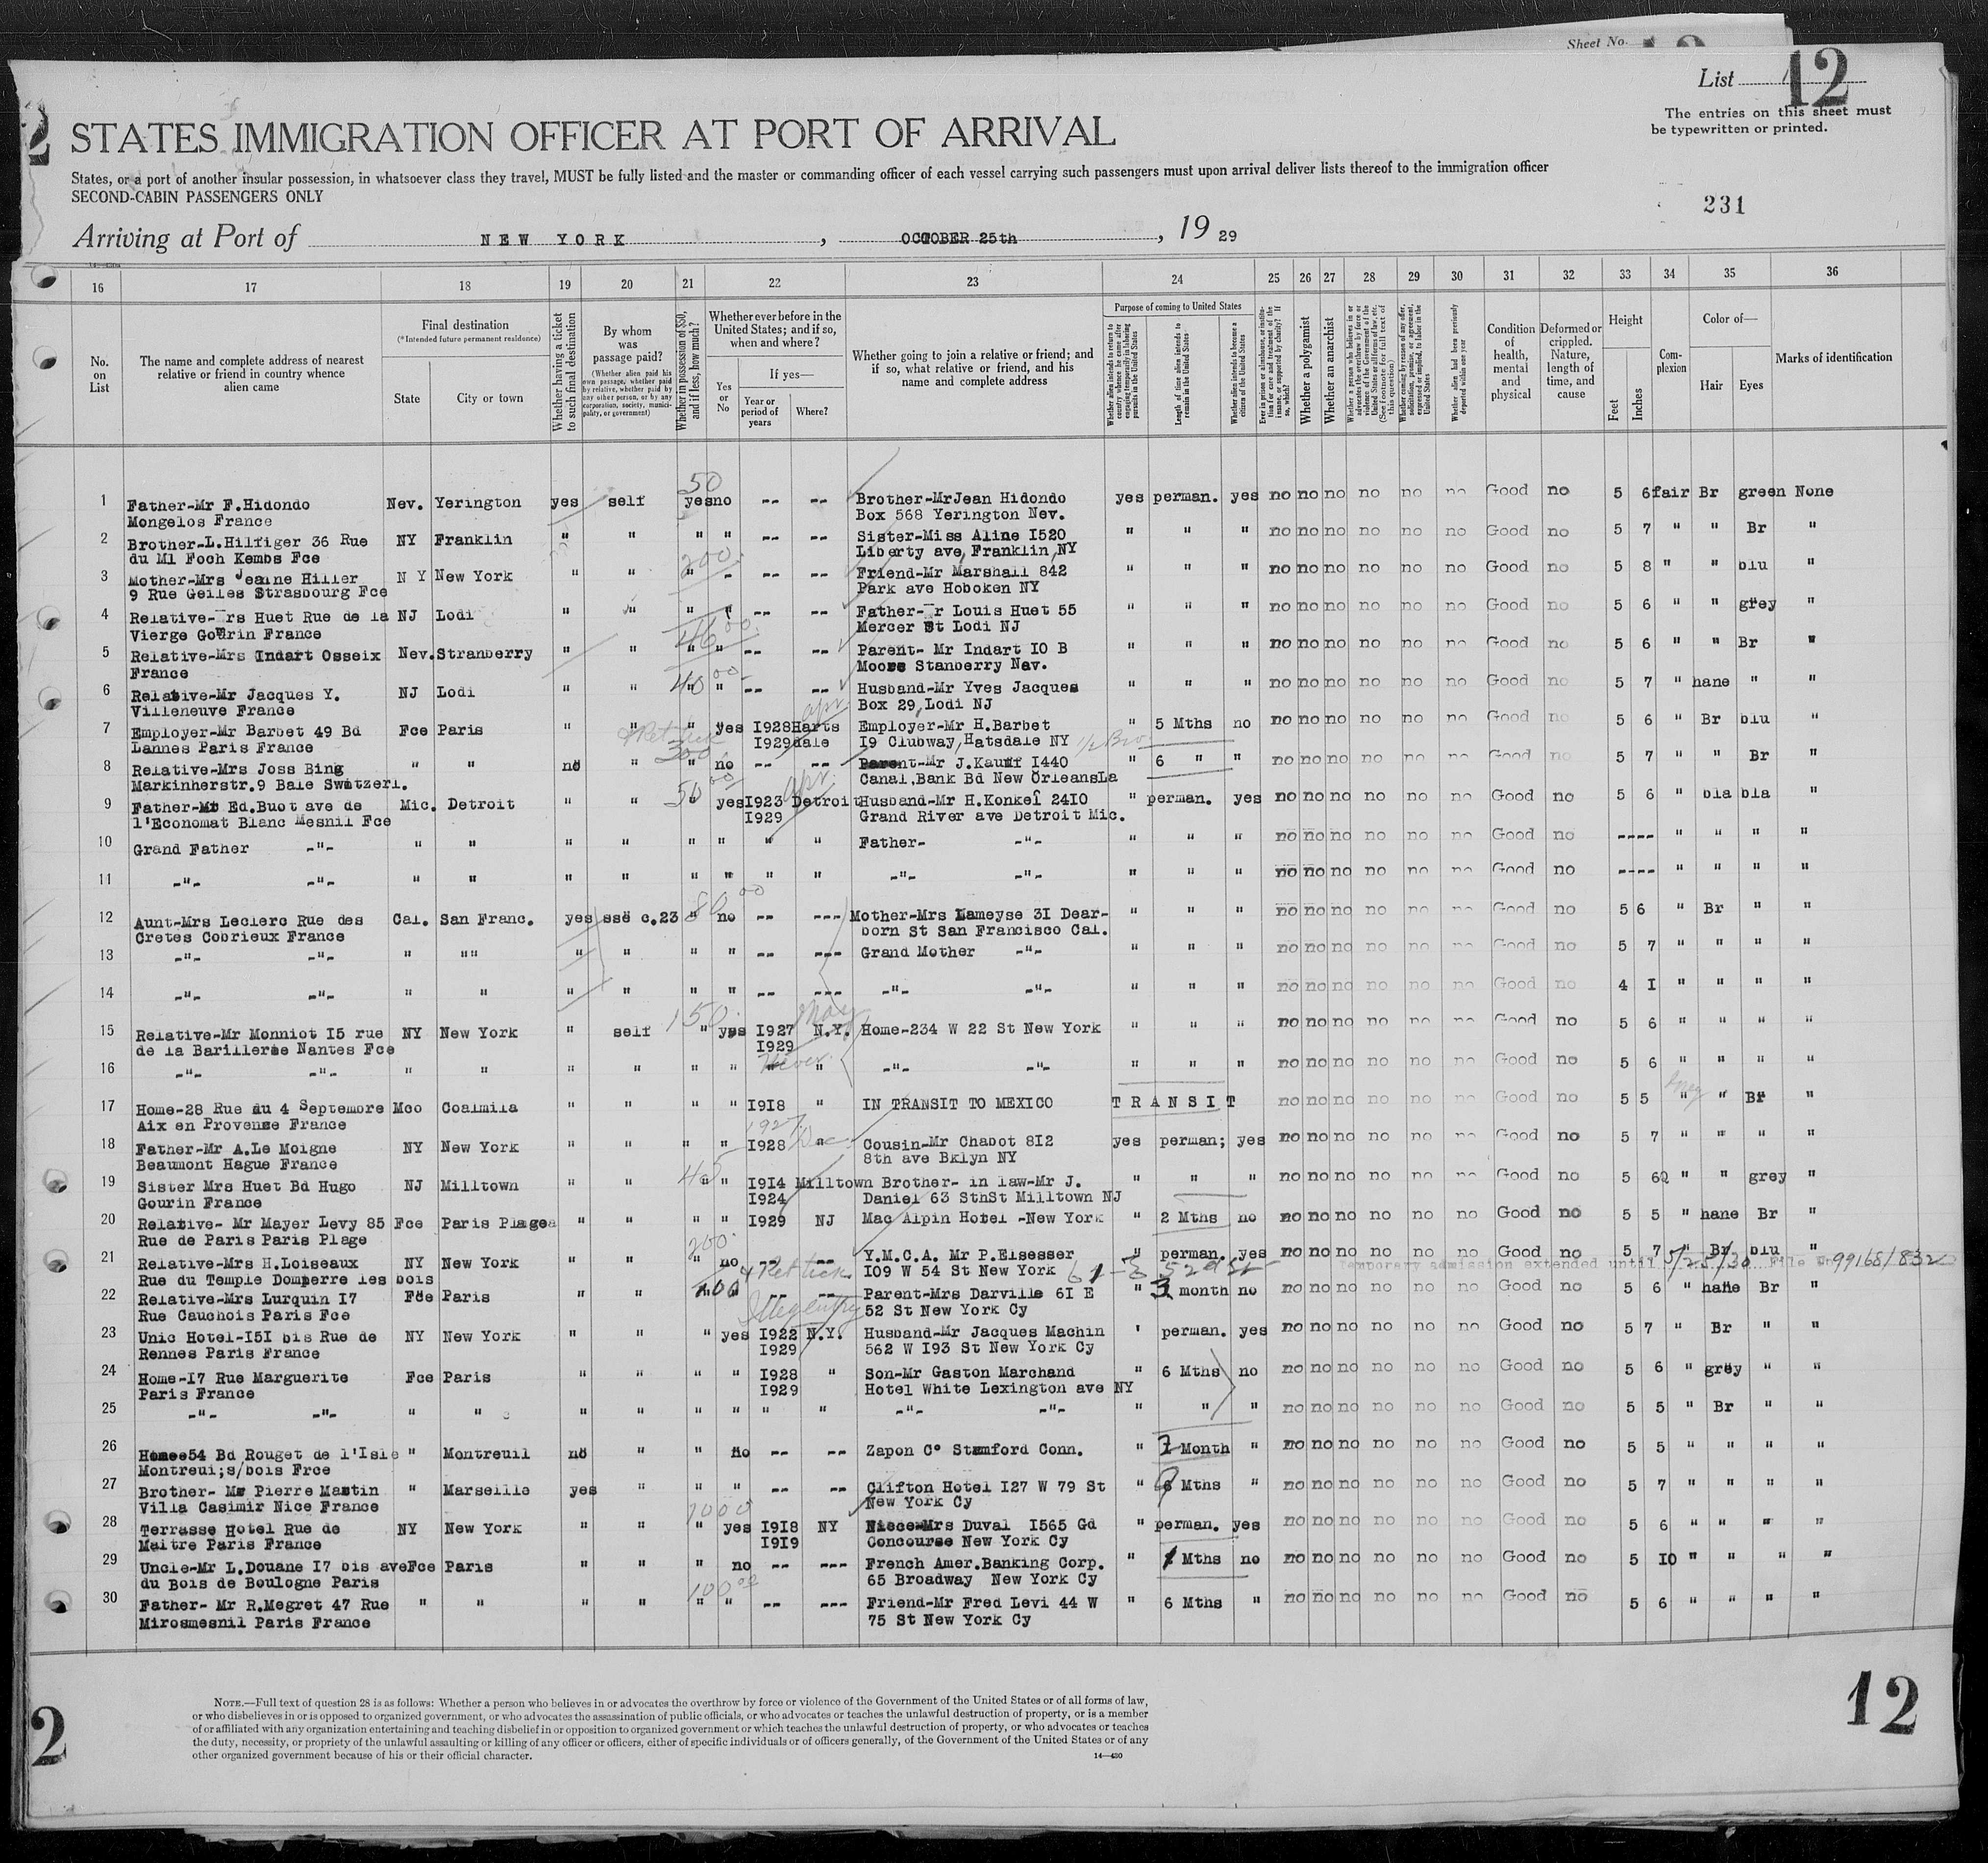 Sheet No.
List 12
The entries on this sheet must
be typewritten or printed.
STATES IMMIGRATION OFFICER AT PORT OF ARRIVAL
States, or a port of another insular possession, in whatsoever class they travel, MUST be fully listed and the master or commanding officer of each vessel carrying such passengers must upon arrival deliver lists thereof to the immigration officer
SECOND-CABIN PASSENGERS ONLY
231
Arriving at Port of NEW YORK, OCTOBER 25th, 19 29
16 17 18 19 20 21 22 23 24 25 26 27 28 29 30 31 32 33 34 35 36
No. on List
The name and complete address of nearest relative or friend in country whence alien came
Final destination (*Intended future permanent residence)
State
City or town
Whether having a ticket to such final destination
By whom was passage paid?
(Whether alien paid his own passage, whether paid by relative, whether paid by any other person, or by any corporation, society, municipality, or government)
Whether in possession of $50, and if less, how much?
Whether ever before in the United States; and if so, when and where?
Yes or No
If yes—
Year or period of years
Where?
Whether going to join a relative or friend; and if so, what relative or friend, and his name and complete address
Purpose of coming to United States
Whether alien intends to return to country whence he came after engaging temporarily in laboring pursuits in the United States
Length of time alien intends to remain in the United States
Whether alien intends to become a citizen of the United States
Ever in prison or almshouse, or institution for care and treatment of the insane, or supported by charity? If so, which?
Whether a polygamist
Whether an anarchist
Whether a person who believes in or advocates the overthrow by force or violence of the Government of the United States or all forms of law, etc. (See footnote for full text of this question)
Whether coming by reason of any offer, solicitation, promise, or agreement, expressed or implied, to labor in the United States
Whether alien had been previously deported within one year
Condition of health, mental and physical
Deformed or crippled. Nature, length of time, and cause
Height
Feet
Inches
Complexion
Color of—
Hair
Eyes
Marks of identification
50
1 Father-Mr F.Hidondo Nev. Yerington yes self yes no -- -- Brother-MrJean Hidondo yes perman. yes no no no no no no Good no 5 6 fair Br green None
Mongelos France Box 568 Yerington Nev.
2 Brother-L.Hilfiger 36 Rue NY Franklin " " " " -- -- Sister-Miss Aline I520 " " " no no no no no no Good no 5 7 " " Br "
du Ml Foch Kembs Fce Liberty ave, Franklin,NY
200
3 Mother-Mrs Jeanne Hiller N Y New York " " " - -- -- Friend-Mr Marshall 842 " " " no no no no no no Good no 5 8 " " blu "
9 Rue Geiles Strasbourg Fce Park ave Hoboken NY
4 Relative- rs Huet Rue de la NJ Lodi " " " " -- -- Father- r Louis Huet 55 " " " no no no no no no Good no 5 6 " " grey "
Vierge Gourin France Mercer St Lodi NJ
5 Relative-Mrs Indart Osseix Nev. Stranberry " " " " -- -- Parent- Mr Indart IO B " " " no no no no no no Good no 5 6 " " Br "
France Moore Stanberry Nev.
40 00
6 Relative-Mr Jacques Y. NJ Lodi " " " " -- -- Husband-Mr Yves Jacques " " " no no no no no no Good no 5 7 " hane " "
Villeneuve France Box 29,Lodi NJ
7 Employer-Mr Barbet 49 Bd Fce Paris " " " yes I928 Harts Employer-Mr H.Barbet " 5 Mths no no no no no no no Good no 5 6 " Br blu "
Lannes Paris France I929 dale I9 Clubway,Hatsdale NY
300
8 Relative-Mrs Joss Bing " " no " " no -- -- Parent-Mr J.Kauff I440 " 6 " " no no no no no no Good no 5 7 " " Br "
Markinherstr.9 Bale Switzerl. Canal,Bank Bd New OrleansLa
50 00
9 Father-Mr Ed.Buot ave de Mic. Detroit " " " yes I923 Detroit Husband-Mr H.Konkel 24IO " perman. yes no no no no no no Good no 5 6 " bla bla "
l'Economat Blanc Mesnil Fce I929 Grand River ave Detroit Mic.
10 Grand Father -"- " " " " " " " " Father- -"- " " " no no no no no no Good no ---- " " " "
11 -"- -"- " " " " " " " " -"- -"- " " " no no no no no no Good no ---- " " " "
80 00
12 Aunt-Mrs Leclerc Rue des Cal. San Franc. yes see c.23 " no -- --- Mother-Mrs Lameyse 3I Dear- " " " no no no no no no Good no 5 6 " Br " "
Cretes Cobrieux France born St San Francisco Cal.
13 -"- -"- " "" " " " " -- --- Grand Mother -"- " " " no no no no no no Good no 5 7 " " " "
14 -"- -"- " " " " " " -- --- -"- -"- " " " no no no no no no Good no 4 I " " " "
150 May
15 Relative-Mr Monniot I5 rue NY New York " self " yes I927 N.Y. Home-234 W 22 St New York " " " no no no no no no Good no 5 6 " " " "
de la Barillerie Nantes Fce I929
Never
16 -"- -"- " " " " " " " " -"- -"- " " " no no no no no no Good no 5 6 " " " "
17 Home-28 Rue du 4 Septembre Mco Coalmila " " " " I9I8 " IN TRANSIT TO MEXICO TRANSIT no no no no no no Good no 5 5 " " Br "
Aix en Provense France
1927
18 Father-Mr A.Le Moigne NY New York " " " " I928 " Dec Cousin-Mr Chabot 8I2 yes perman; yes no no no no no no Good no 5 7 " " " "
Beaumont Hague France 8th ave Bklyn NY
45
19 Sister Mrs Huet Bd Hugo NJ Milltown " " " " I9I4 Milltown Brother- in law-Mr J. " " " no no no no no no Good no 5 6 " " grey "
Gourin France I924 Daniel 63 SthSt Milltown NJ
20 Relative- Mr Mayer Levy 85 Fce Paris Plage " " " " I929 NJ Mac Alpin Hotel -New York " 2 Mths no no no no no no no Good no 5 5 " hane Br "
Rue de Paris Paris Plage
200
21 Relative-Mrs H.Loiseaux NY New York " " " no -- -- Y.M.C.A. Mr P.Elsesser " perman. yes no no no no no no Good no 5 7 " Br blu "
Rue du Temple Dompierre les bois I09 W 54 St New York Temporary admission extended until 5/25/30 File No 99168/832
100 Ret tick.
22 Relative-Mrs Lurquin I7 Fce Paris " " " " -- -- Parent-Mrs Darville 6I E " 3 month no no no no no no no Good no 5 6 " hane Br "
Rue Cauchois Paris Fce 52 St New York Cy
Illeg entry
23 Unic Hotel-I5I bis Rue de NY New York " " " yes I922 N.Y. Husband-Mr Jacques Machin ' perman. yes no no no no no no Good no 5 7 " Br " "
Rennes Paris France I929 562 W I93 St New York Cy
24 Home-I7 Rue Marguerite Fce Paris " " " " I928 " Son-Mr Gaston Marchand " 6 Mths no no no no no no no Good no 5 6 " grey " "
Paris France I929 Hotel White Lexington ave NY
25 -"- -"- " " " " " " " " -"- -"- " " " no no no no no no Good no 5 5 " Br " "
26 Home 54 Bd Rouget de l'Isle " Montreuil no " " no -- -- Zapon C° Stamford Conn. " Month " no no no no no no Good no 5 5 " " " "
Montreui;s/bois Frce
27 Brother- Mr Pierre Mastin " Marseille yes " " " -- -- Clifton Hotel I27 W 79 St " Mths " no no no no no no Good no 5 7 " " " "
Villa Casimir Nice France New York Cy
1000
28 Terrasse Hotel Rue de NY New York " " " yes I9I8 NY Niece-Mrs Duval I565 Gd " perman. yes no no no no no no Good no 5 6 " " " "
Maitre Paris France I9I9 Concourse New York Cy
29 Uncle-Mr L.Douane I7 bis ave Fce Paris " " " no -- --- French Amer.Banking Corp. " Mths no no no no no no no Good no 5 IO " " " "
du Bois de Boulogne Paris 65 Broadway New York Cy
100 00
30 Father- Mr R.Megret 47 Rue " " " " " " -- --- Friend-Mr Fred Levi 44 W " 6 Mths " no no no no no no Good no 5 6 " " " "
Mirosmesnil Paris France 75 St New York Cy
NOTE.—Full text of question 28 is as follows: Whether a person who believes in or advocates the overthrow by force or violence of the Government of the United States or of all forms of law,
or who disbelieves in or is opposed to organized government, or who advocates the assassination of public officials, or who advocates or teaches the unlawful destruction of property, or is a member
of or affiliated with any organization entertaining and teaching disbelief in or opposition to organized government or which teaches the unlawful destruction of property, or who advocates or teaches
the duty, necessity, or propriety of the unlawful assaulting or killing of any officer or officers, either of specific individuals or of officers generally, of the Government of the United States or of any
other organized government because of his or their official character.
14—430
2
12